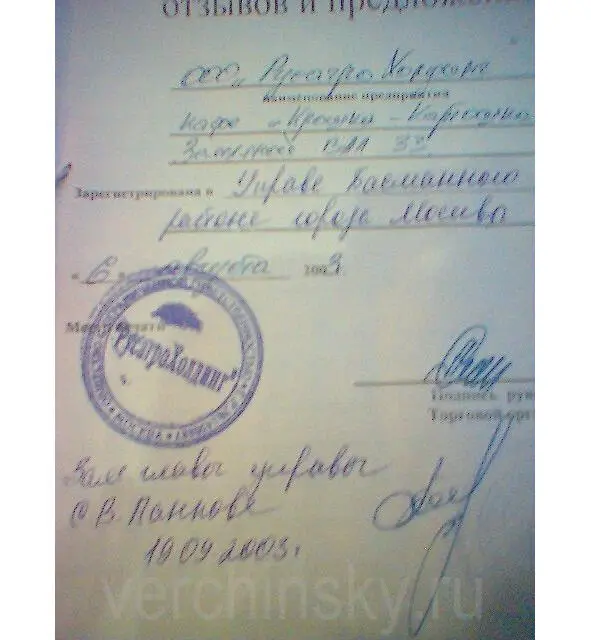 отзывов и предложени
ООО „Русагро Холдинг
наименование предприятия
кафе „Крошка-Картошка
Земляной вал 33
Зарегистрирована в Управе Басманного
района города Москва
„ 6 " августа 2003г.
Место печати
"РусагроХолдинг"
МОСКВА
Подпись рук
Торговой орг
Зам главы управы
С В Панкова
19 09 2003г
verchinsky.ru